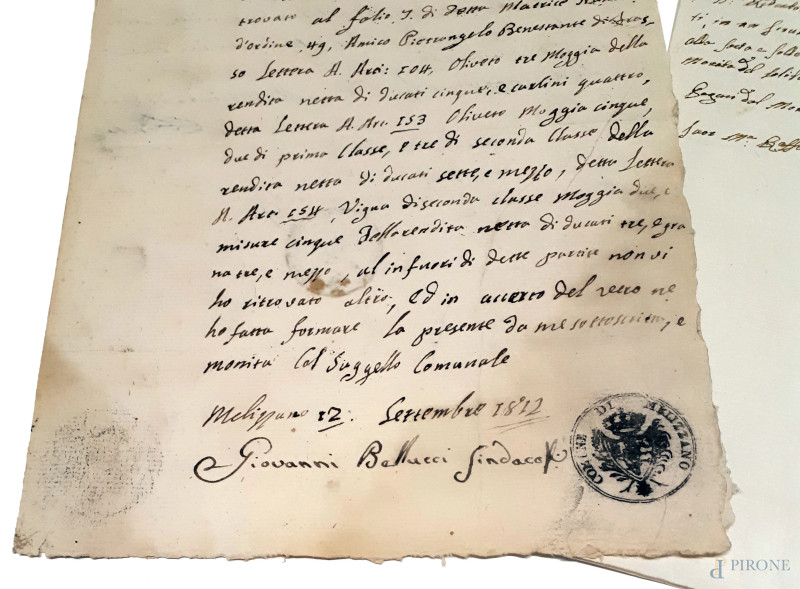 trovato al folio J. di detta Matrice
d'ordine 49, Amico Pietrangelo Benestante di
so Lettera A. Art: 104, Oliveto tre Moggia della
rendita netta di ducati cinque, e carlini quattro,
detta Lettera A. Art. 153 Oliveto Moggia cinque,
due di prima Classe, e tre di seconda Classe della
rendita netta di ducati sette, e mezzo, detta Lettera
A. Art: 154, Vigna di seconda classe Moggia due, e
misure cinque della rendita netta di ducati tre, e gra
na tre, e mezzo, al infuori di dette partite non vi
ho ritrovato altro, Ed in accerto del vero ne
ho fatta formare la presente da me sottoscritta, e
monita Col Suggello Comunale
Melizzano 12 Settembre 1811
Giovanni Bellucci Sindaco
COMUNE DI MELIZZANO
ti, in
alla
Monita del solito
PIRONE